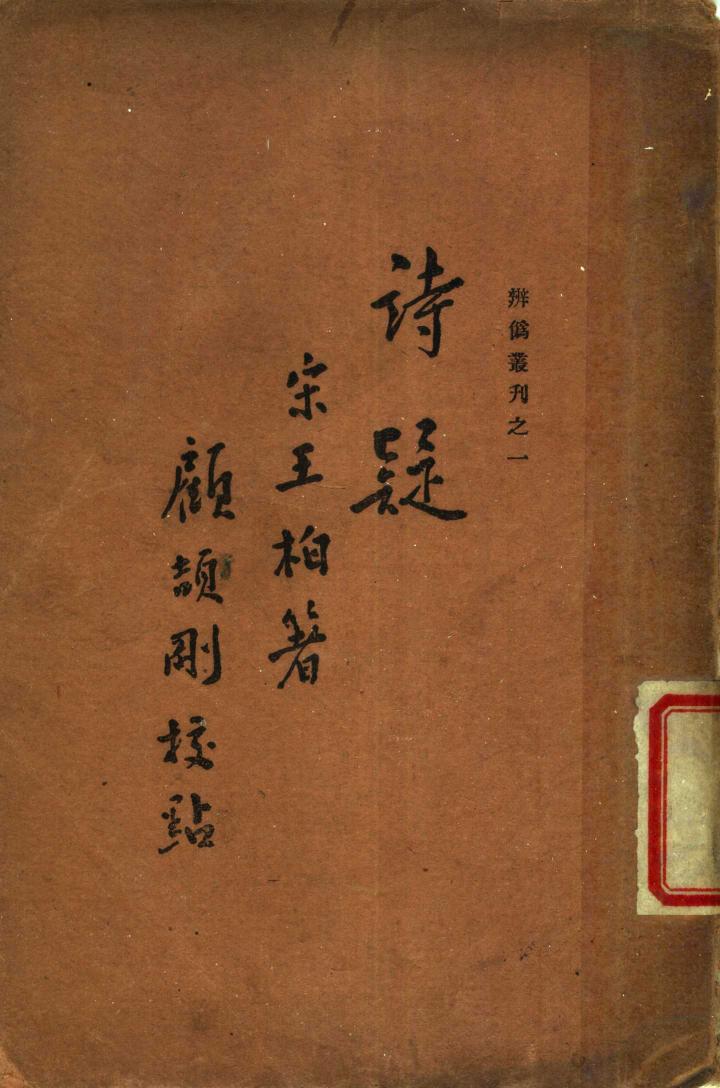 辨僞叢刊之一
詩疑
宋王柏著
顧頡剛校點